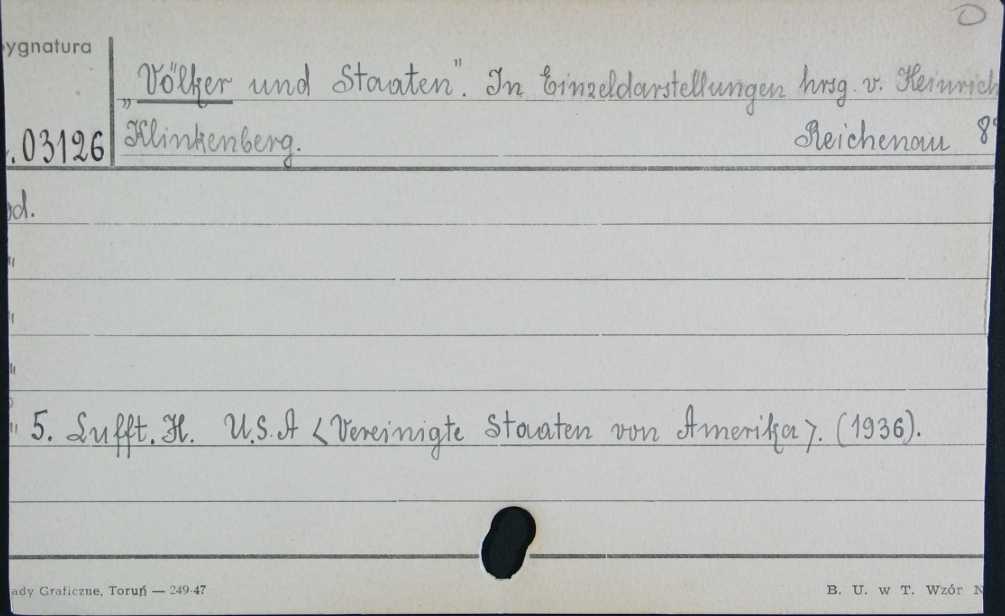 ygnatura
.03126
„Völker und Staaten". In Einzeldarstellungen hrsg. v. Heinrich
Klinkenberg. Reichenau 8°
od.
"
"
"
" 5. Lufft. H. U.S.A <Vereinigte Staaten von Amerika>. (1936).
ady Graficzne, Toruń — 249-47
B. U. w T. Wzór N